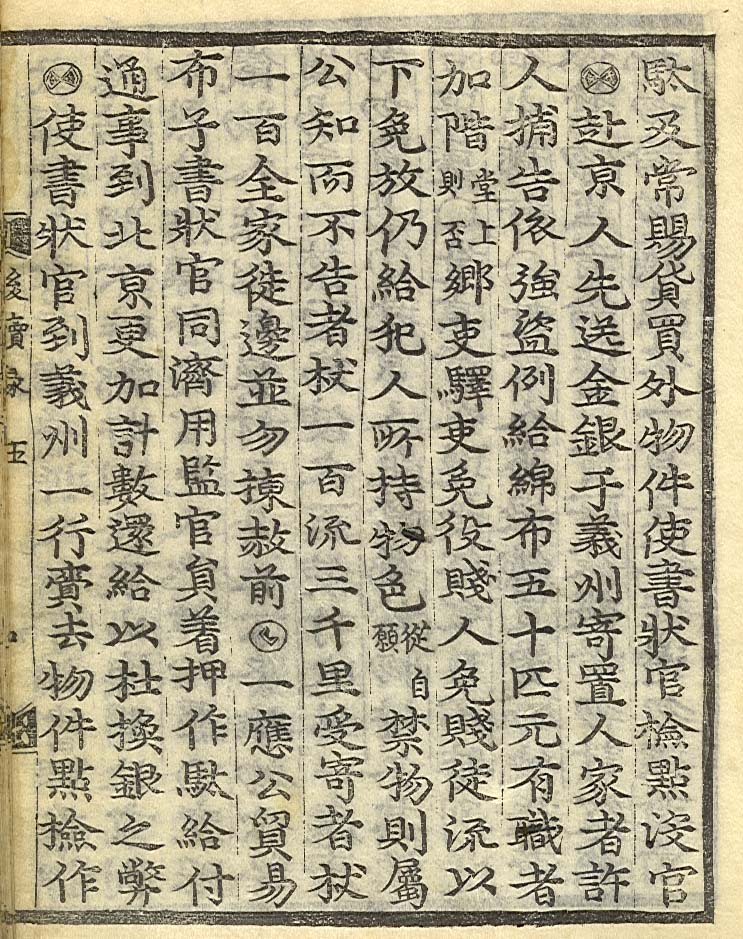 駄及常賜貨買外物件使書狀官檢點沒官
赴京人先送金銀于義州寄置人家者許
人捕告依強盜例給綿布五十匹元有職者
加階堂上則否鄕吏驛吏免役賤人免賤徒流以
下免放仍給犯人所持物色從自願禁物則屬
公知而不告者杖一百流三千里受寄者杖
一百全家徒邊並勿揀赦前一應公貿易
布子書狀官同濟用監官員着押作駄給付
通事到北京更加計數還給以杜換銀之弊
使書狀官到義州一行賫去物件點檢作
後續录 五